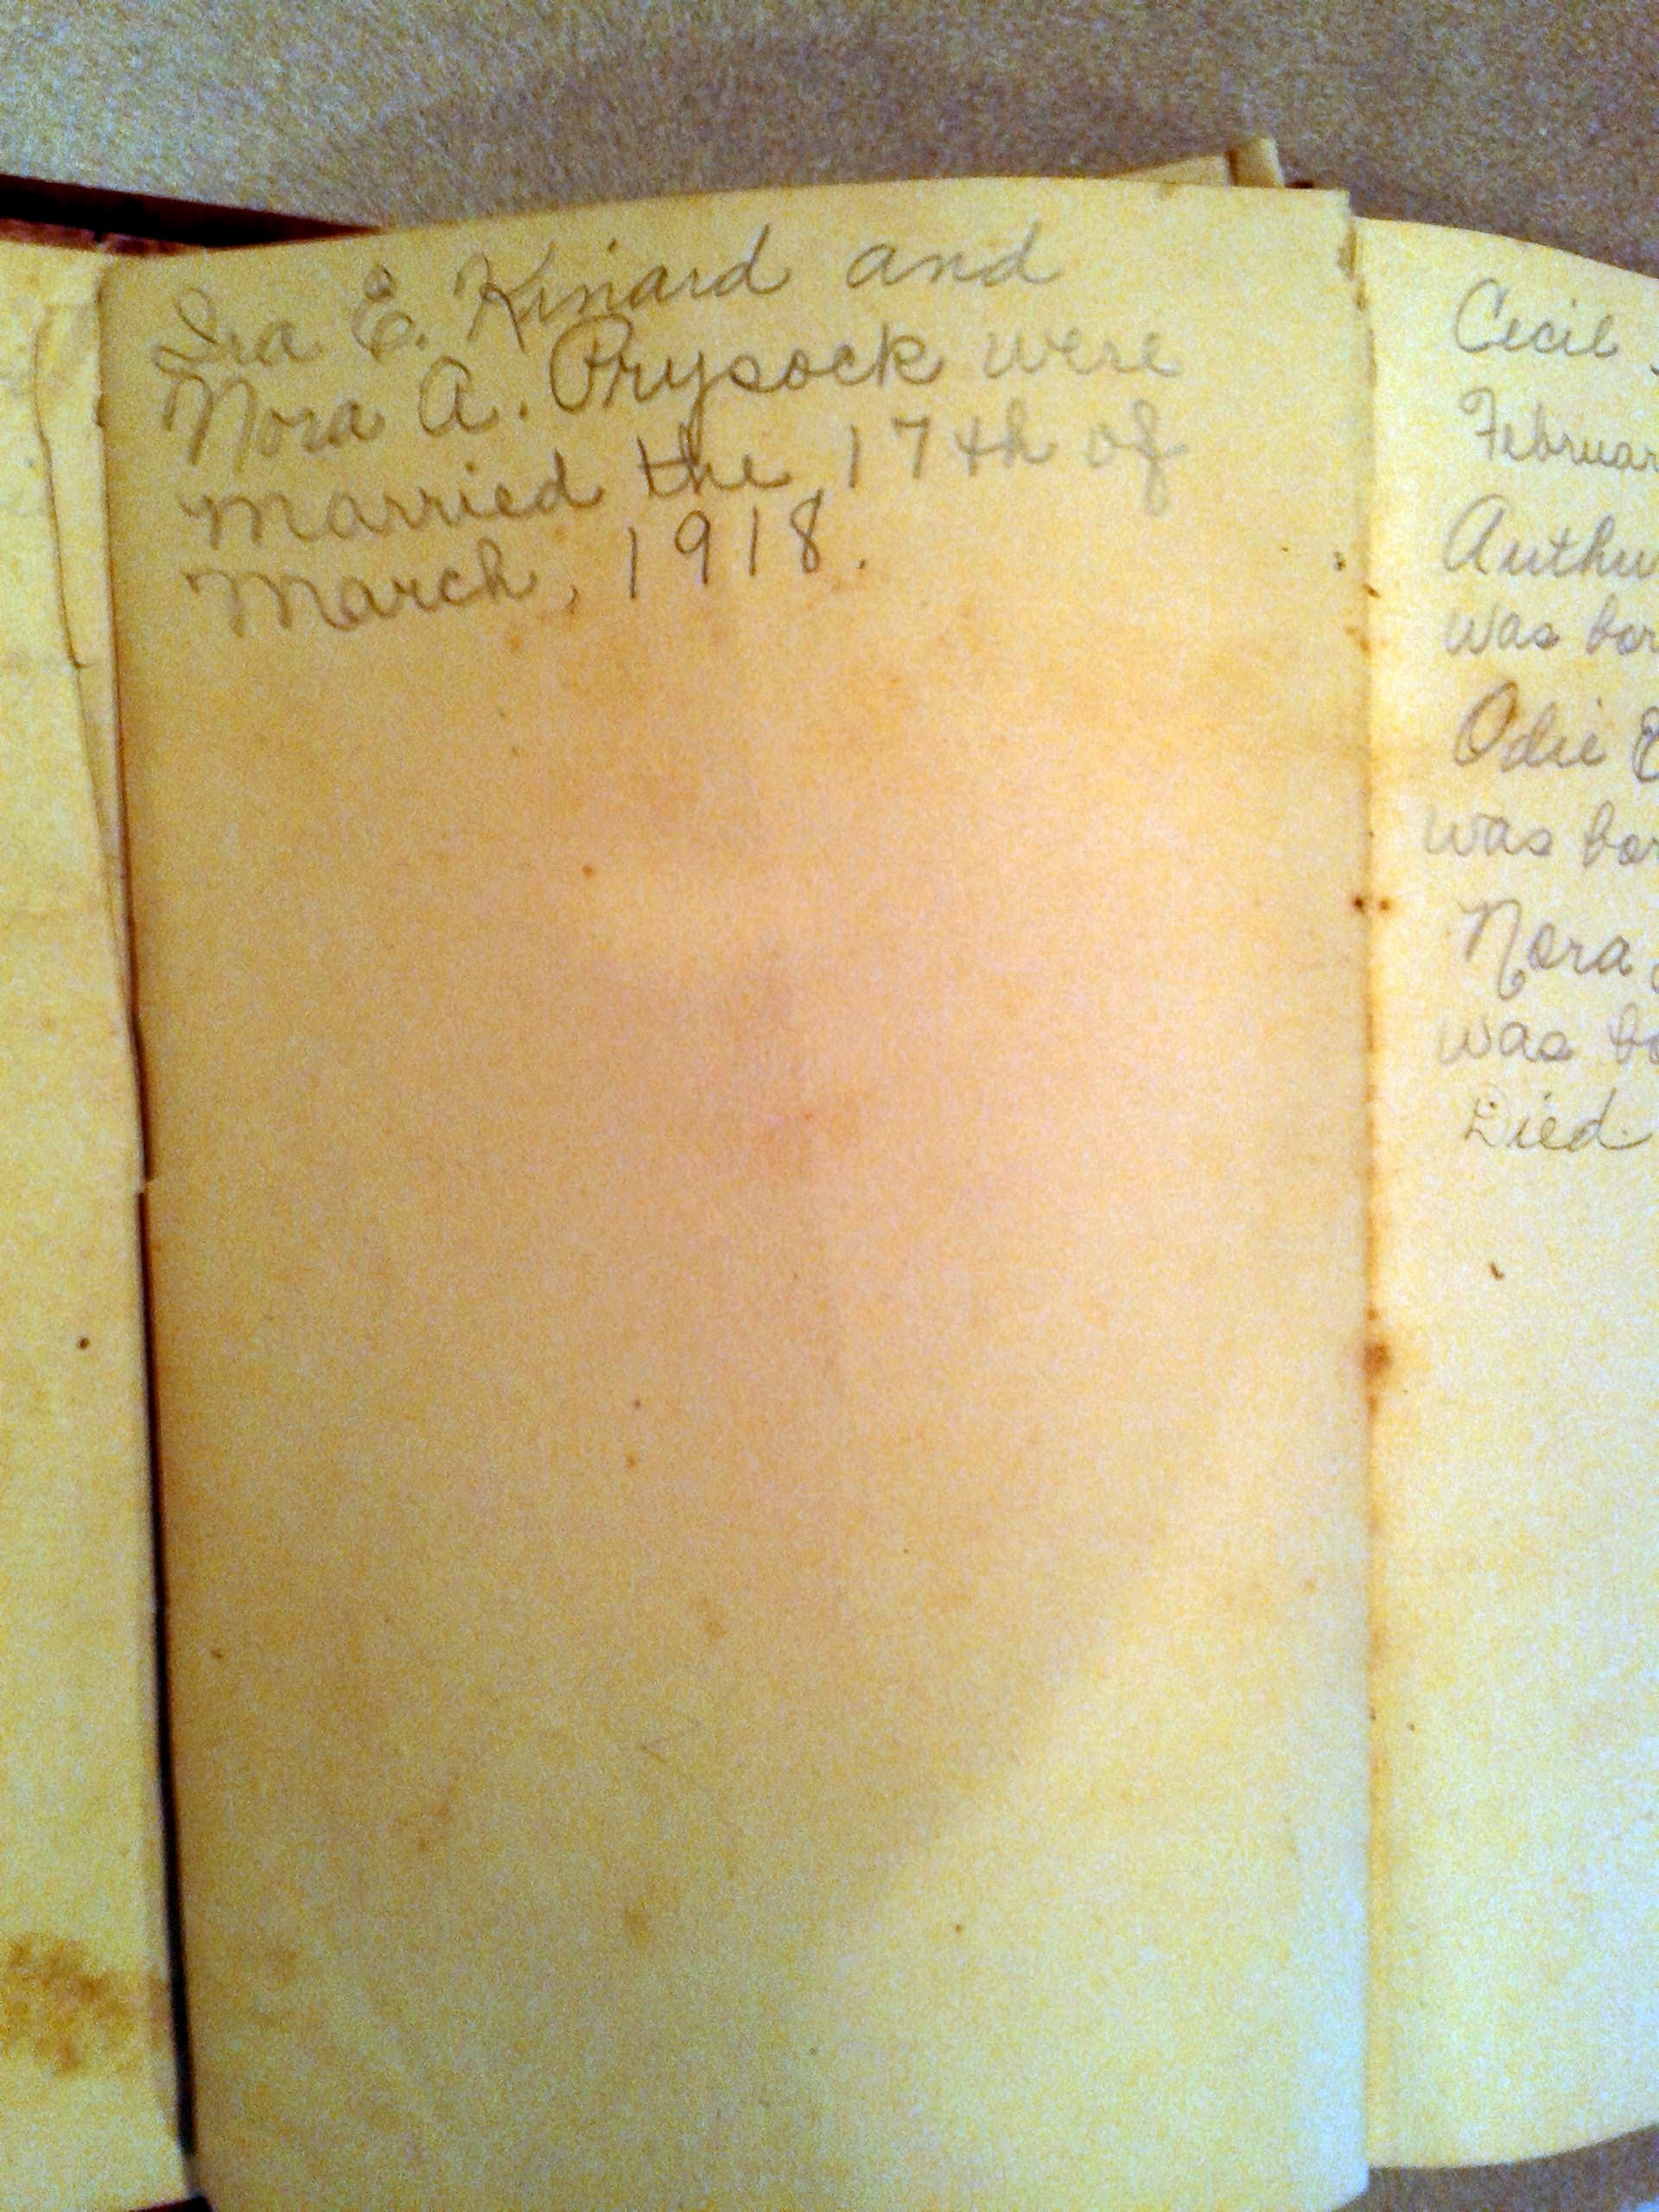 Ira E. Kinard and
Nora A. Prysock were
married the 17th of
March, 1918.
Cecil
Februar
Arthu
was bor
Odie E
was bor
Nora
was bo
Died